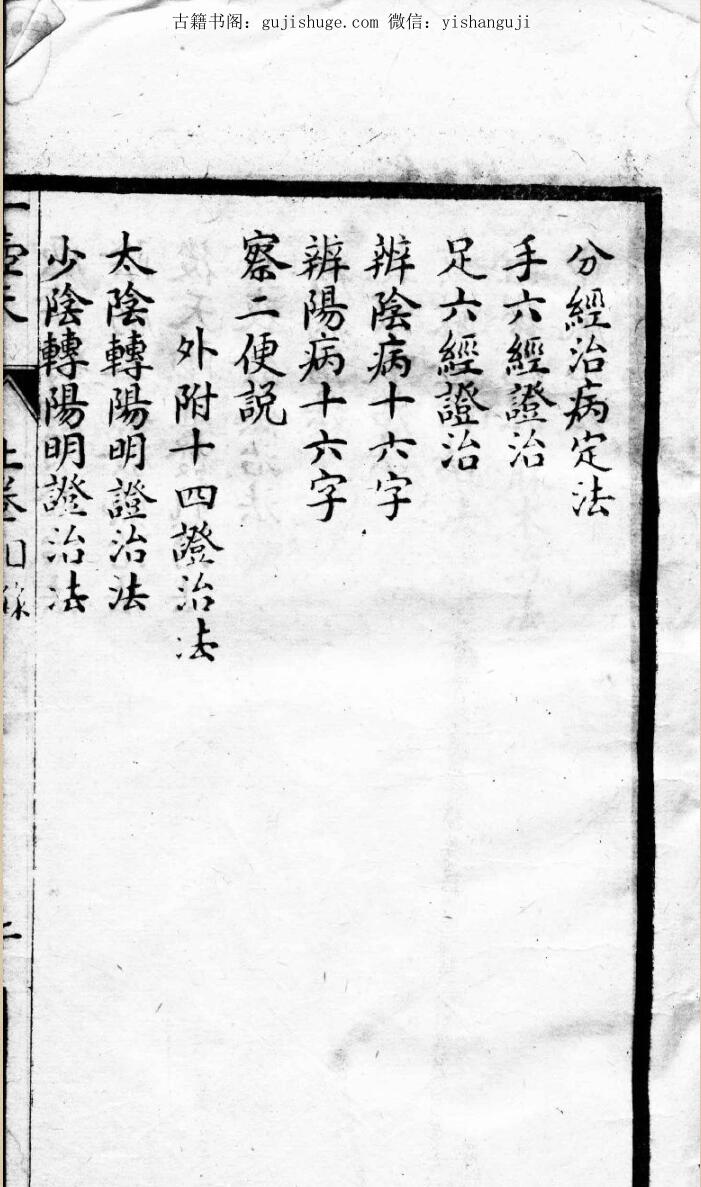 古籍书阁：gujishuge.com 微信：yishanguji
分經治病定法
手六經證治
足六經證治
辨陰病十六字
辨陽病十六字
察二便説
外附十四證治法
太陰轉陽明證治法
少陰轉陽明證治法
二